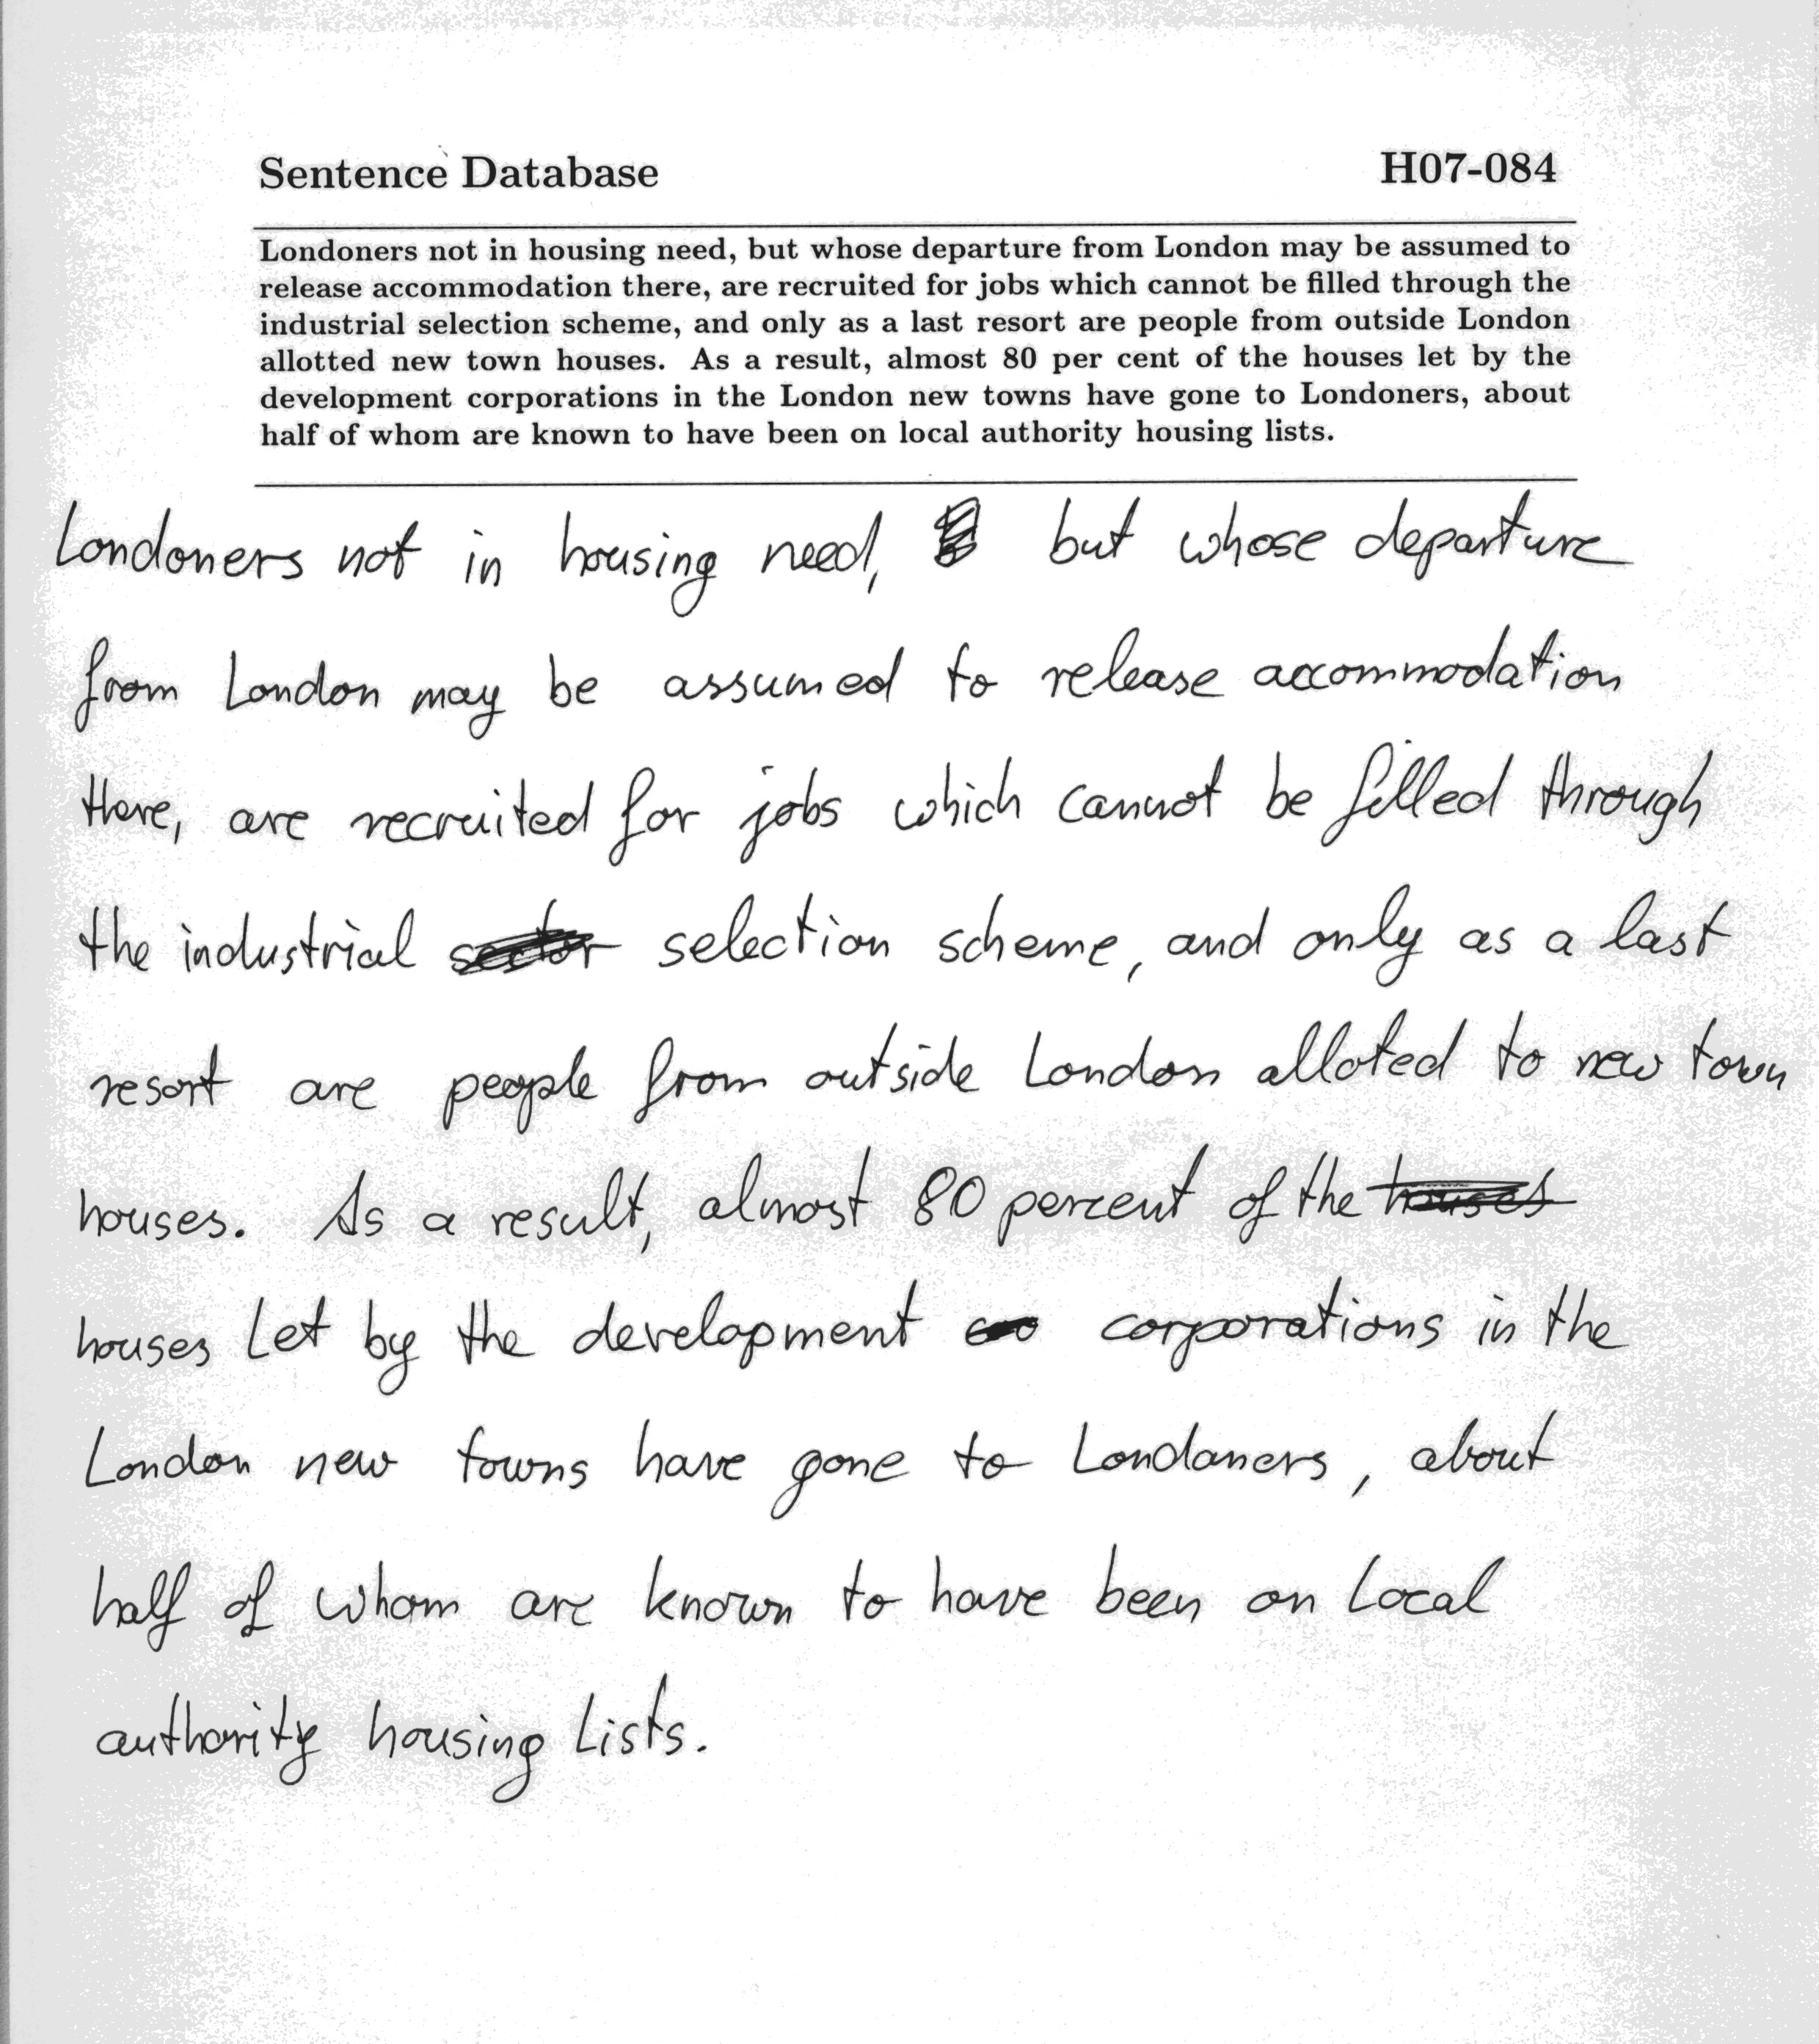 Sentence Database H07-084
Londoners not in housing need, but whose departure from London may be assumed to
release accommodation there, are recruited for jobs which cannot be filled through the
industrial selection scheme, and only as a last resort are people from outside London
allotted new town houses. As a result, almost 80 per cent of the houses let by the
development corporations in the London new towns have gone to Londoners, about
half of whom are known to have been on local authority housing lists.
Londoners not in housing need, but whose departure
from London may be assumed to release accommodation
there, are recruited for jobs which cannot be filled through
the industrial sector selection scheme, and only as a last
resort are people from outside London alloted to new town
houses. As a result, almost 80 percent of the houses
houses let by the development corporations in the
London new towns have gone to Londoners, about
half of whom are known to have been on local
authority housing lists.